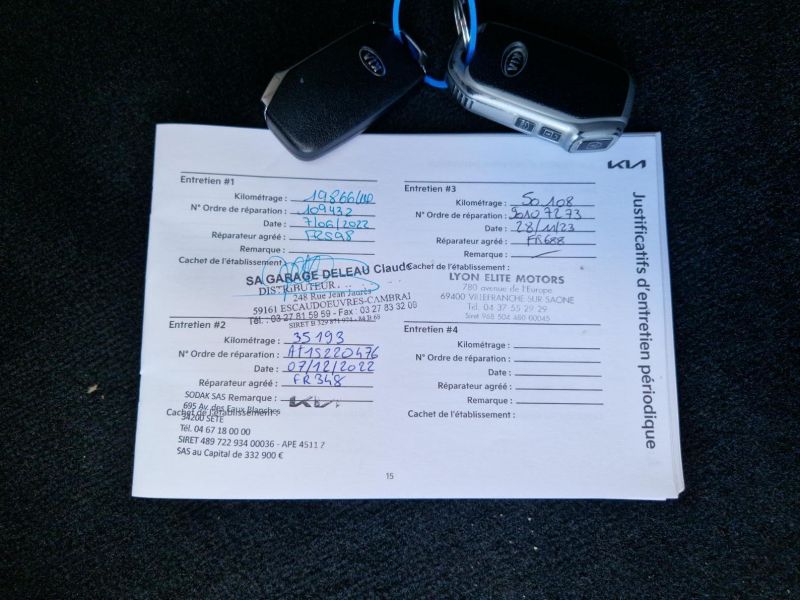 KIA
KIA
KIA
Justificatifs d'entretien périodique
Entretien #1
Kilométrage : 19866
N° Ordre de réparation : 109432
Date : 7/06/2022
Réparateur agréé : FRS98
Remarque :
Cachet de l'établissement :
SA GARAGE DELEAU Claude
DISTRIBUTEUR
248 Rue Jean Jaurès
59161 ESCAUDOEUVRES-CAMBRAI
Tél. : 03 27 81 59 59 - Fax : 03 27 83 32 00
Entretien #2
Kilométrage : 35193
N° Ordre de réparation : AT1S220476
Date : 07/12/2022
Réparateur agréé : FR348
Remarque : KIA
Cachet de l'établissement :
SODAK SAS
695 Av. des Eaux Blanches
34200 SETE
Tél. 04 67 18 00 00
SIRET 489 722 934 00036 - APE 4511 Z
SAS au Capital de 332 900 €
Entretien #3
Kilométrage : 50 108
N° Ordre de réparation :
Date : 28/11/23
Réparateur agréé : FR688
Remarque :
Cachet de l'établissement :
LYON ELITE MOTORS
780 avenue de l'Europe
69400 VILLEFRANCHE SUR SAONE
Tél. 04 37 55 29 29
Siret 968 504 480 00045
Entretien #4
Kilométrage :
N° Ordre de réparation :
Date :
Réparateur agréé :
Remarque :
Cachet de l'établissement :
15